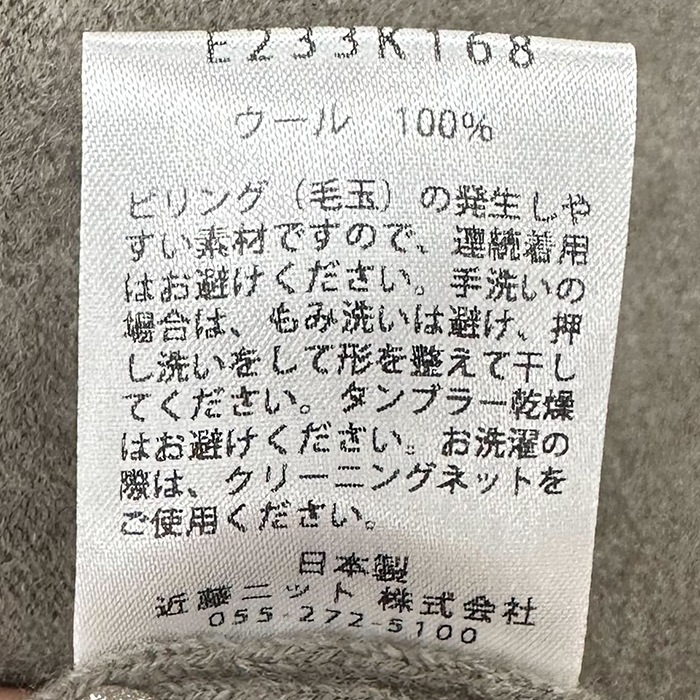 E233K168
ウール 100%
ピリング（毛玉）の発生しや
すい素材ですので、連続着用
はお避けください。手洗いの
場合は、もみ洗いは避け、押
し洗いをして形を整えて干し
てください。タンブラー乾燥
はお避けください。お洗濯の
際は、クリーニングネットを
ご使用ください。
日本製
近藤ニット 株式会社
055-272-5100